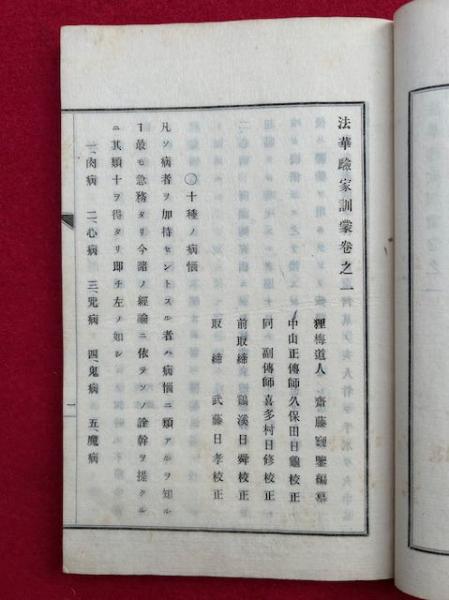 法華驗家訓蒙卷之一
狸梅道人　齋藤 鑒編纂
中山正傳師久保田日龜校正
同　副傳師喜多村日修校正
前取締　鷄溪日舜校正
取締　武藤日孝校正
〇十種ノ病惱
凡ソ病者ヲ加持セントスル者ハ病惱ニ類アルヲ知ル
ヿ最モ急務タリ今諸ノ經論ニ依テソノ詮幹ヲ提クル
ニ其類十ヲ得タリ即チ左ノ如シ
一、肉病　二、心病　三、咒病　四、鬼病　五、魔病
一